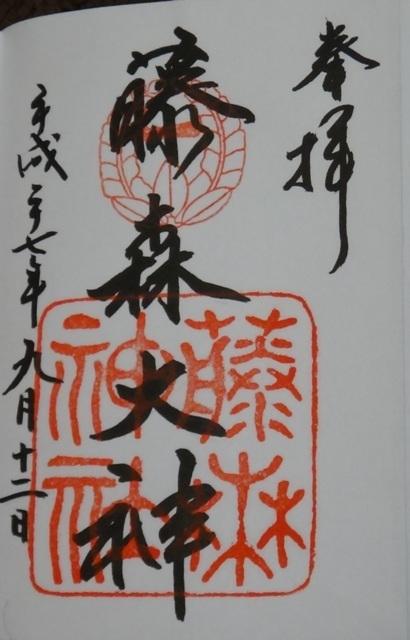 奉拝
藤森大神
平成二十七年九月十二日
藤森
神社